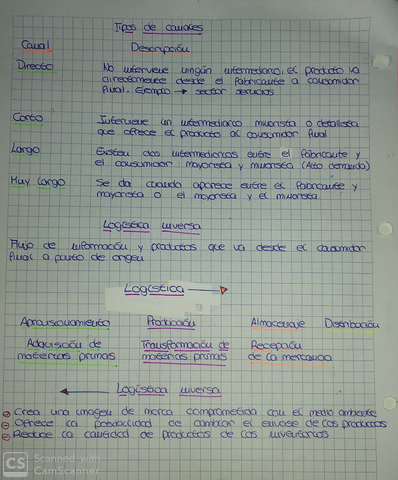 Tipos de canales
Canal Descripción
Directo No interviene ningún intermediario, el producto va
directamente desde el fabricante a consumidor
final. Ejemplo → sector servicios
Corto Interviene un intermediario minorista o detallista
que ofrece el producto al consumidor final
Largo Existen dos intermediarios entre el fabricante y
el consumidor: mayorista y minorista (Alta demanda)
Muy largo Se da cuando aparece entre el fabricante y
mayorista o el mayorista y el minorista.
Logística inversa
Flujo de información y productos que va desde el consumidor
final a punto de origen
Logística →
Aprovisionamiento Producción Almacenaje Distribución
Adquisición de Transformación de Recepción
materias primas materias primas de la mercancía
← Logística inversa
Crea una imagen de marca comprometida con el medio ambiente
Ofrece la posibilidad de cambiar el envase de los productos
Reduce la cantidad de productos de los inventarios
CS Scanned with
CamScanner